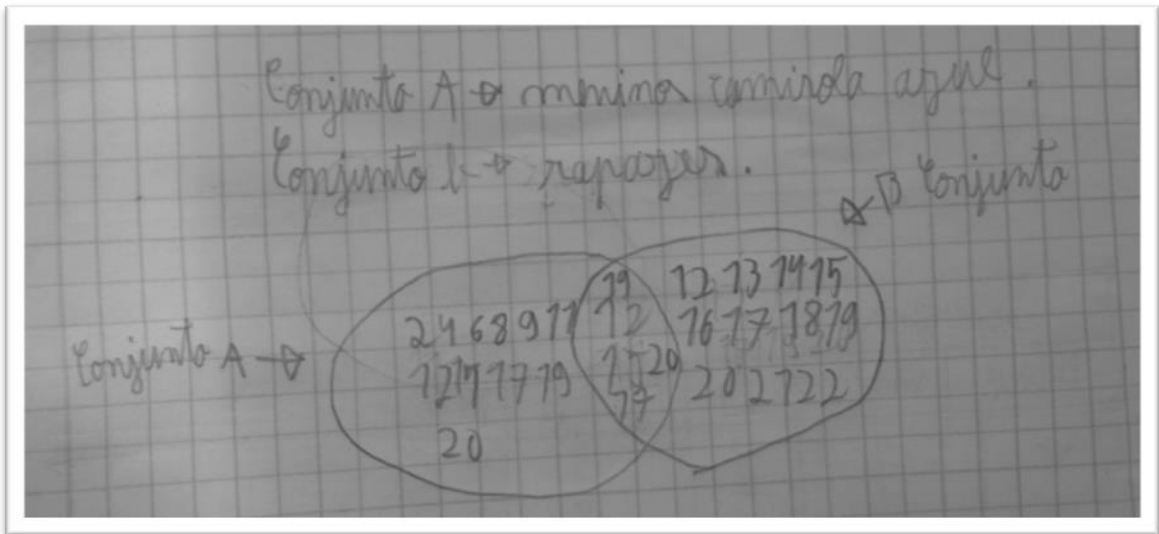 Conjunto A → meninos camisola azul.
Conjunto B → rapazes.
B Conjunto
Conjunto A →
2 4 6 8 9 11
12 17 19
20
19
12
20
17
12 13 14 15
16 17 18 19
20 21 22